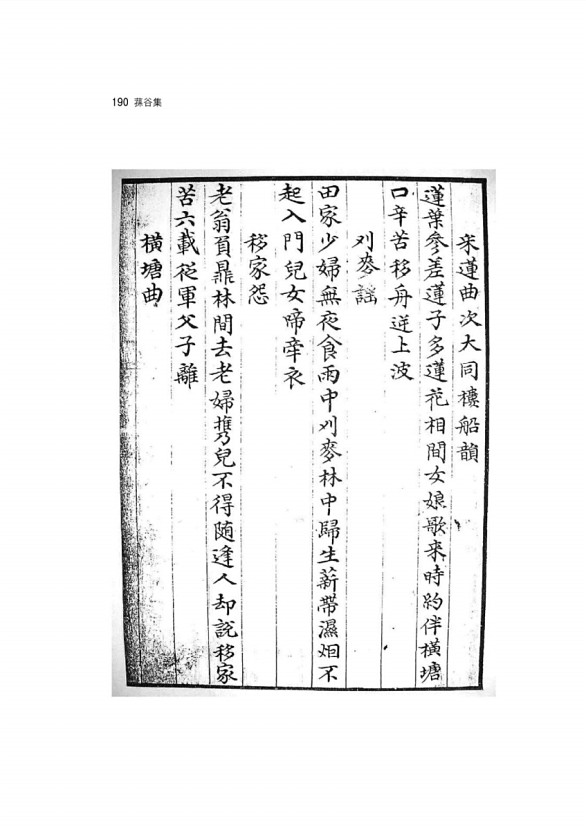 190 蓀谷集
采蓮曲次大同樓船韻
蓮葉參差蓮子多蓮花相間女娘歌來時約伴橫塘
口辛苦移舟逆上波
刈麥謠
田家少婦無夜食雨中刈麥林中歸生薪帶濕烟不
起入門兒女啼牽衣
移家怨
老翁負鼎林間去老婦携兒不得隨逢人却說移家
苦六載從軍父子離
橫塘曲